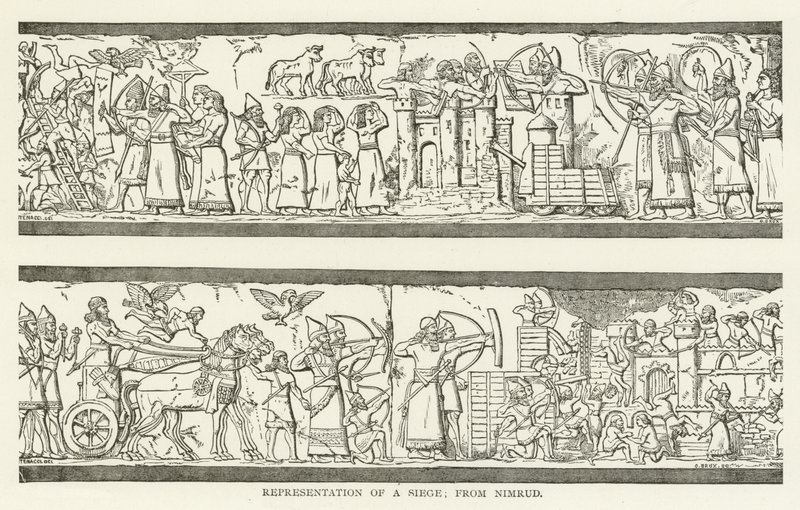 TENACCI.DEL
TENACCI.DEL
REPRESENTATION OF A SIEGE; FROM NIMRUD.